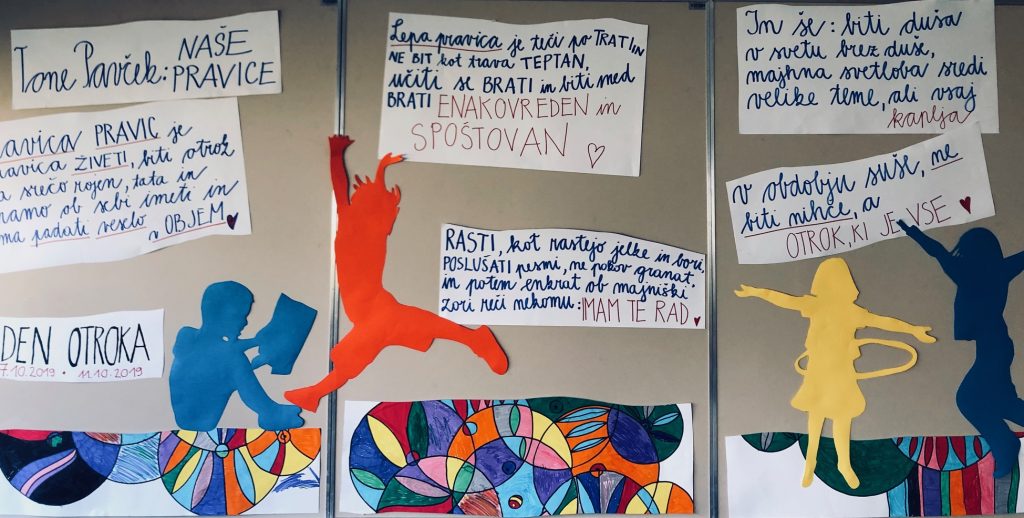 Tone Pavček: NAŠE
PRAVICE
PRAVIC je
ŽIVETI, biti otrok
srečo rojen, tata in
ob sebi imeti in
padati veselo
v OBJEM
TEDEN OTROKA
7.10.2019 • 11.10.2019
Lepa pravica je teči po TRATI IN
NE BIT kot trava TEPTAN,
učiti se BRATI in biti med
BRATI ENAKOVREDEN in
SPOŠTOVAN
RASTI, kot rastejo jelke in bori,
POSLUŠATI pesmi, ne pokov granat.
in potem enkrat ob majniški
zori reči nekomu: IMAM TE RAD
In še: biti duša
v svetu brez duše,
majhna svetloba sredi
velike teme, ali vsaj
kaplja
v obdobju suše, ne
biti nihče, a
OTROK, KI JE VSE